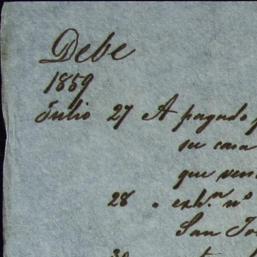 Debe
1859
Julio 27 A pagado
su casa
que
28 " exh.n nº
San
30